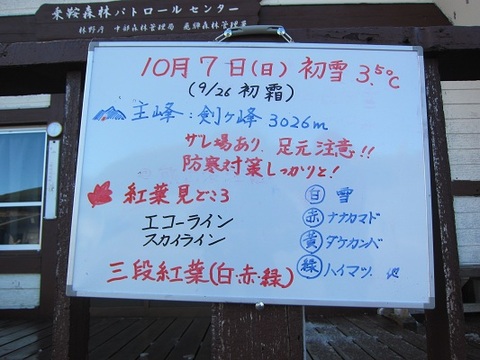 乗鞍森林パトロールセンター
林野庁 中部森林管理局 飛騨森林管理署
10月7日(日) 初雪 3.5℃
(9/26 初霜)
主峰:剣ヶ峰 3026m
ザレ場あり、足元注意!!
防寒対策しっかりと!
紅葉見どころ
エコーライン
スカイライン
三段紅葉(白・赤・緑)
白 雪
赤 ナナカマド
黄 ダケカンバ
緑 ハイマツ. 他